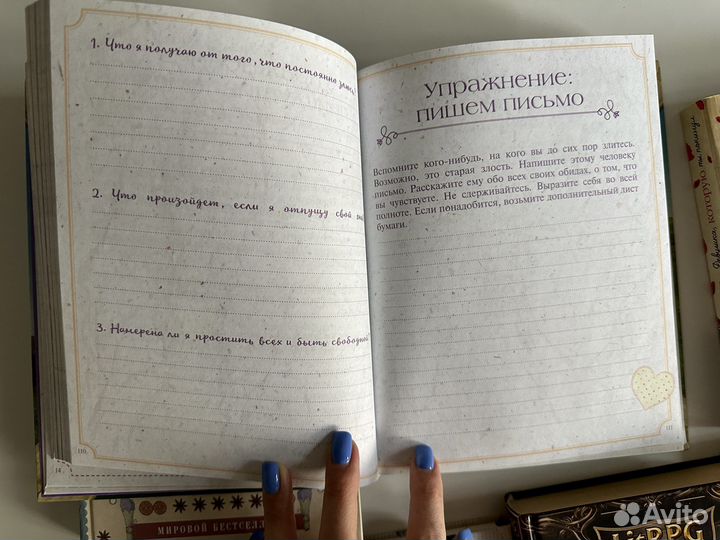 1. Что я получаю от того, что постоянно
2. Что произойдет, если я отпущу свой
3. Намерена ли я простить всех и быть свободной
110
14
Упражнение:
пишем письмо
Вспомните кого-нибудь, на кого вы до сих пор злитесь.
Возможно, это старая злость. Напишите этому человеку
письмо. Расскажите ему обо всех своих обидах, о том, что
вы чувствуете. Не сдерживайтесь. Выразите себя во всей
полноте. Если понадобится, возьмите дополнительный лист
бумаги.
111
Девушка, которую ты покинул
МИРОВОЙ БЕСТСЕЛ
LitRPG
Avito